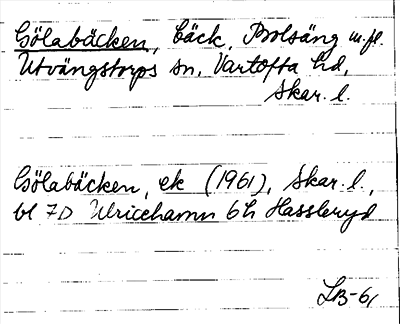 Gölabäcken, bäck, Brolsäng m.fl.
Utvängstorps sn, Vartofta hd,
Skar. l.
Gölabäcken, ek (1961), Skar. l.,
bl 7D Ulricehamn 6h Hassleryd
LB-61